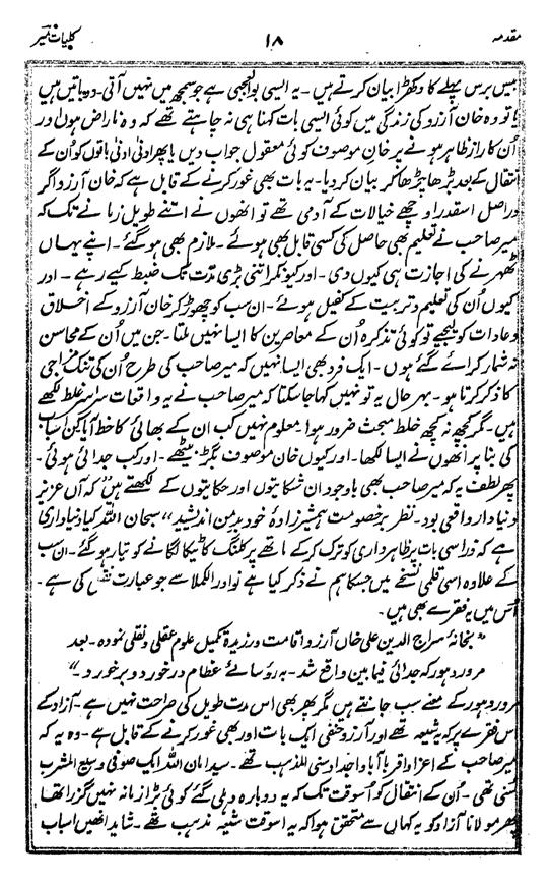 مقدمہ ۱۸ کلیات میر
بیس برس پہلے کا دکھڑا بیان کرتے ہیں۔ یہ ایسی بوالعجبی ہے جو سمجھ میں نہیں آتی۔ دو باتیں ہیں
یا تو وہ خان آرزو کی زندگی میں کوئی ایسی بات کہنا ہی نہ چاہتے تھے کہ وہ ناراض ہوں اور
اُن کا راز ظاہر ہونے پر خان موصوف کوئی معقول جواب دیں یا پھر ادنیٰ ادنیٰ باتوں کو اُن کے
انتقال کے بعد بڑھا چڑھا کر بیان کر دیا۔ یہ بات بھی غور کرنے کے قابل ہے کہ خان آرزو اگر
دراصل اسقدر اوچھے خیالات کے آدمی تھے تو انھوں نے اتنے طویل زمانے تک کہ
میر صاحب نے تعلیم بھی حاصل کی کسی قابل بھی ہوئے۔ ملازم بھی ہوگئے۔ اپنے یہاں
ٹھہرنے کی اجازت ہی کیوں دی۔ اور کیونکر اتنی بڑی مدت تک ضبط کیے رہے۔ اور
کیوں اُن کی تعلیم و تربیت کے کفیل ہوئے۔ ان سب کو چھوڑ کر خان آرزو کے اخلاق
و عادات کو لیجیے تو کوئی تذکرہ اُن کے معاصرین کا ایسا نہیں ملتا۔ جن میں اُن کے محاسن
نہ شمار کرائے گئے ہوں۔ ایک فرد بھی ایسا نہیں کہ میر صاحب کی طرح اُن کی تنک مزاجی
کا ذکر کرتا ہو۔ بہرحال یہ تو نہیں کہا جا سکتا کہ میر صاحب نے یہ واقعات سراسر غلط لکھے
ہیں۔ مگر کچھ نہ کچھ خلط مبحث ضرور ہوا۔ معلوم نہیں کب ان کے بھائی کا خط آیا کن اسباب
کی بنا پر اُنھوں نے ایسا لکھا۔ اور کیوں خان موصوف بگڑ بیٹھے۔ اور کب جدائی ہوئی۔
پھر لطف یہ کہ میر صاحب بھی باوجود ان شکایتوں اور حکایتوں کے لکھتے ہیں کہ آں عزیز
دنیادار واقعی بود۔ نظر بر خصومت ہمشیرزادۂ خود بد من اندیشید" سبحان اللہ کیا دنیاداری
ہے کہ ذرا سی بات پر ظاہر داری کو ترک کر کے ماتھے پر کلنگ کا ٹیکا لگانے کو تیار ہوگئے۔ ان سب
کے علاوہ اسی قلمی نسخے میں جسکا ہم نے ذکر کیا ہے نوادر الکملا سے جو عبارت نقل کی ہے۔
اُس میں یہ فقرے بھی ہیں۔
"بخانۂ سراج الدین علی خاں آرزو اقامت ورزیدہ تکمیل علوم عقلی و نقلی نمودہ۔ بعد
مرور دہور کہ جدائی فیمابین واقع شد۔ بہ رؤسائے عظام درخورد و برخورد۔"
مرور دہور کے معنے سب جانتے ہیں مگر پھر بھی اس مدت طویل کی صراحت نہیں ہے۔ آزاد کے
اس فقرے پر کہ یہ شیعہ تھے اور آرزو حنفی ایک بات اور بھی غور کرنے کے قابل ہے۔ وہ یہ کہ
میر صاحب کے اعزا و اقربا آبا و اجداد سنی المذہب تھے۔ سید امان اللہ ایک صوفی وسیع المشرب
سنی تھے۔ اُن کے انتقال کو اُسوقت تک کہ یہ دوبارہ دہلی گئے کوئی بڑا زمانہ نہیں گزرا تھا
پھر مولانا آزاد کو یہ کہاں سے متحقق ہوا کہ یہ اسوقت شیعہ مذہب تھے۔ شاید انھیں اسباب